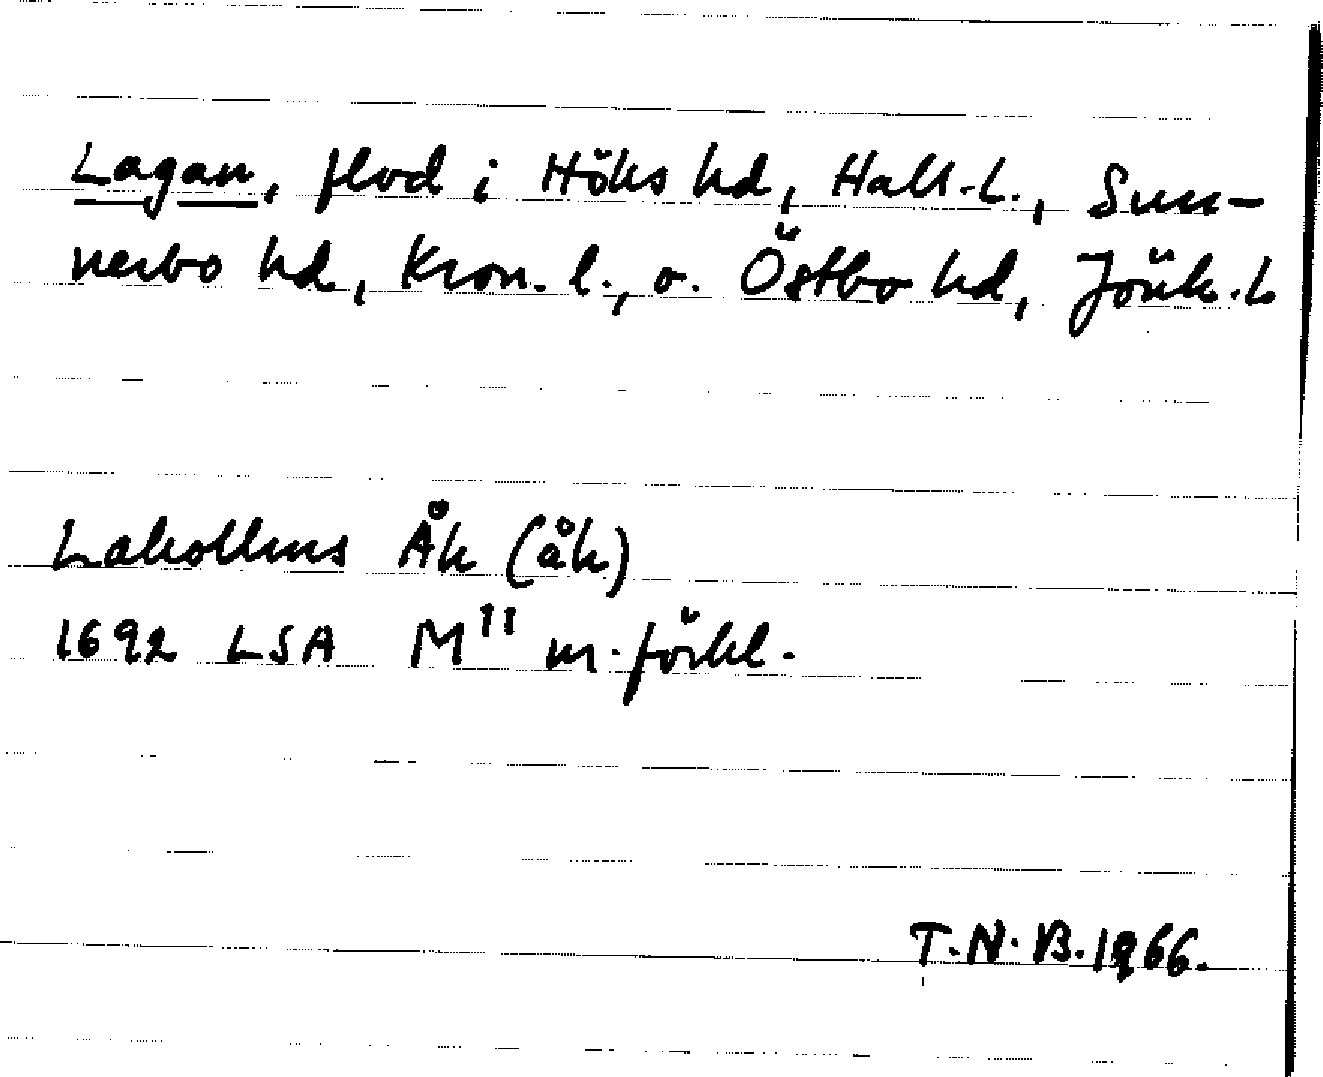 Lagan, flod i Höks hd, Hall.l., Sun-
nerbo hd, Kron. l., o. Östbo hd, Jönk.l
Laholms Åk (åk)
1692 LSA M11 m. förkl.
T.N.B. 1966.